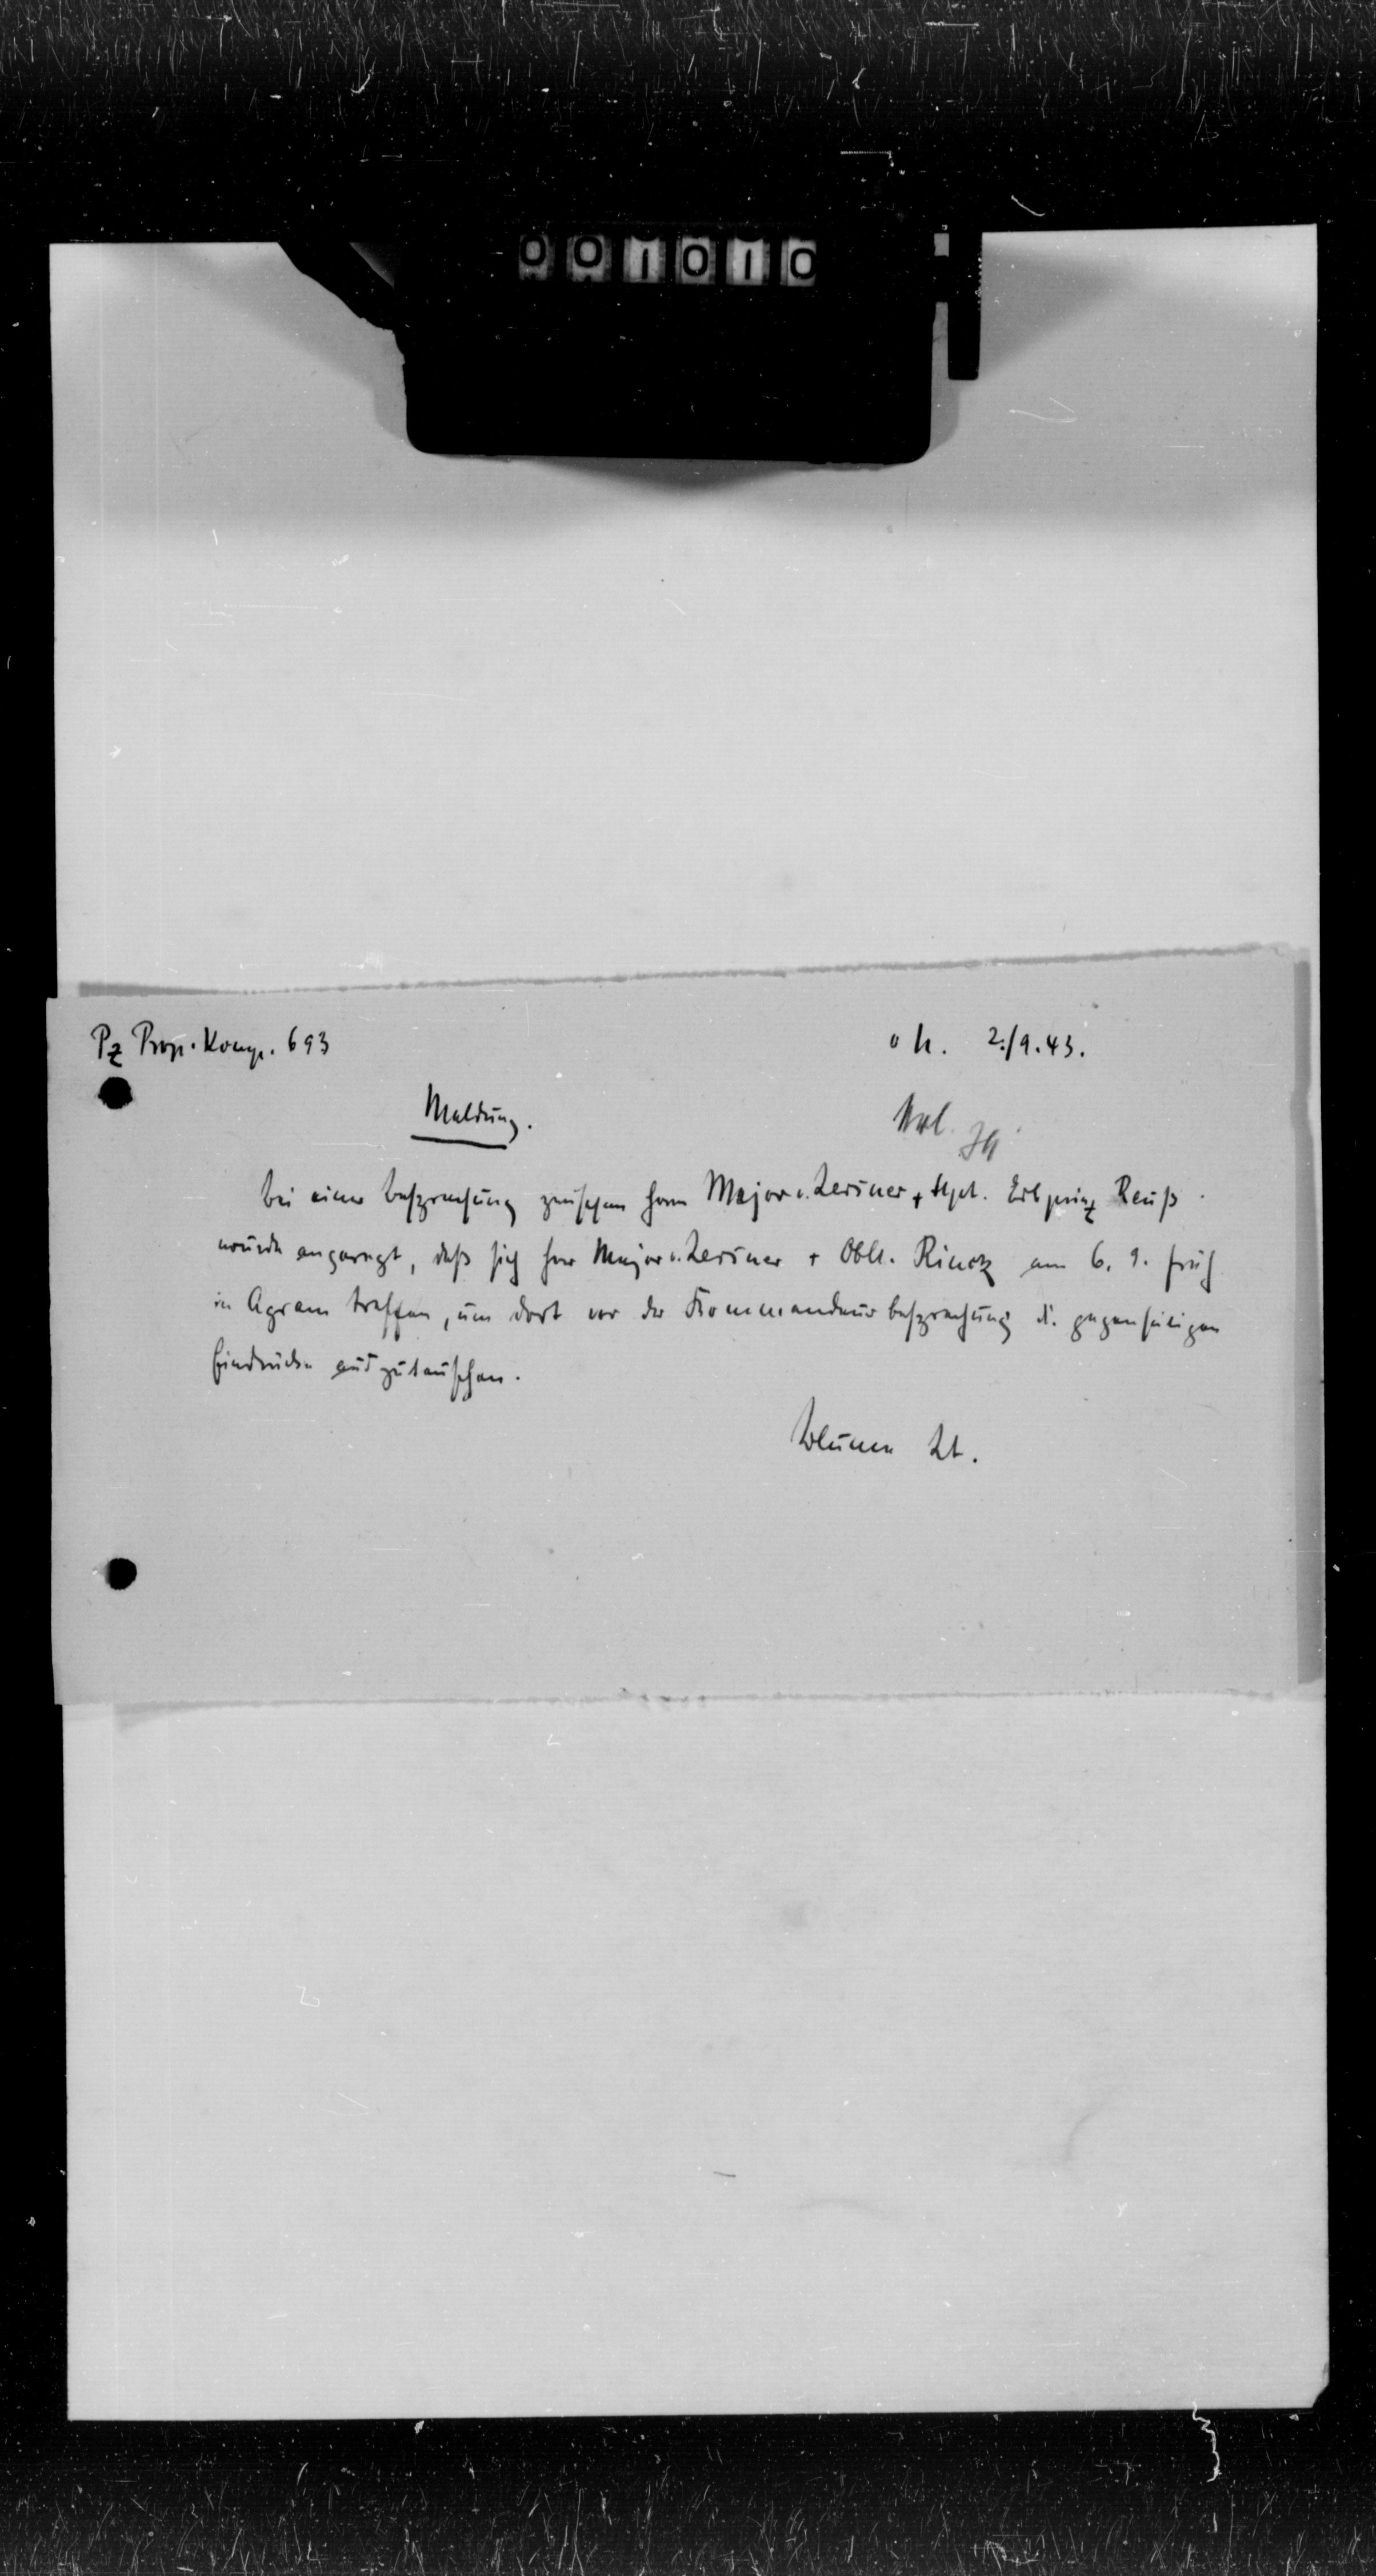 001010
Pz Prop. Komp. 693
o. U. 2./9.43.
Meldung.
Bei einer Besprechung zwischen Herrn Major v. Zeriner + Hpt. Erbprinz Reuß
wurde angeregt, daß sich Herr Major v. Zeriner + Oblt. Rinck am 6. 9. früh
in Agram treffen, um dort vor der Kommandeurbesprechung d. gegenseitigen
Eindrücke auszutauschen.
Lt.